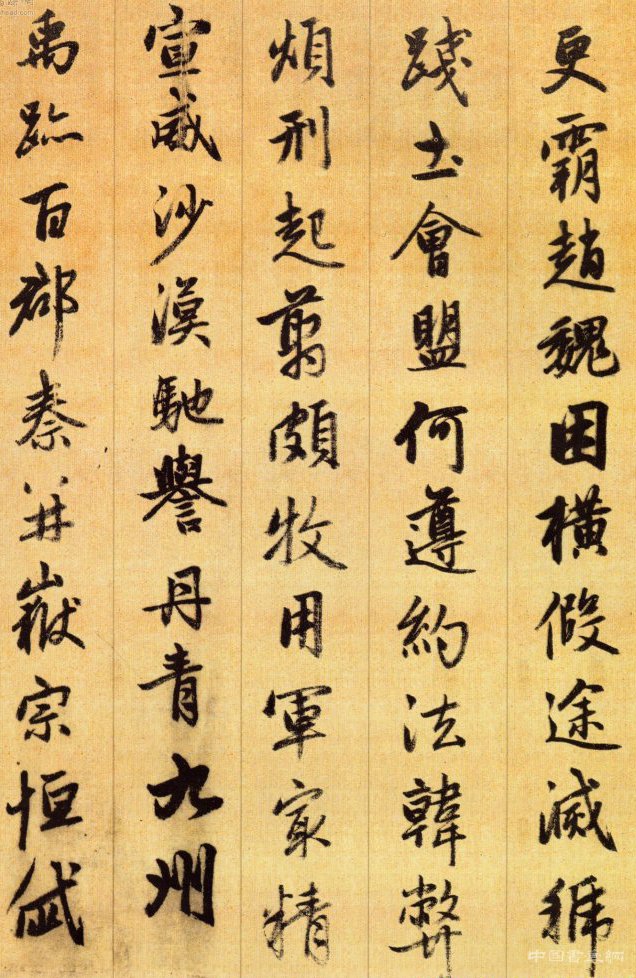 更霸趙魏困橫假途滅虢
踐土會盟何遵約法韓弊
煩刑起翦頗牧用軍最精
宣威沙漠馳譽丹青九州
禹跡百郡秦并嶽宗恒岱